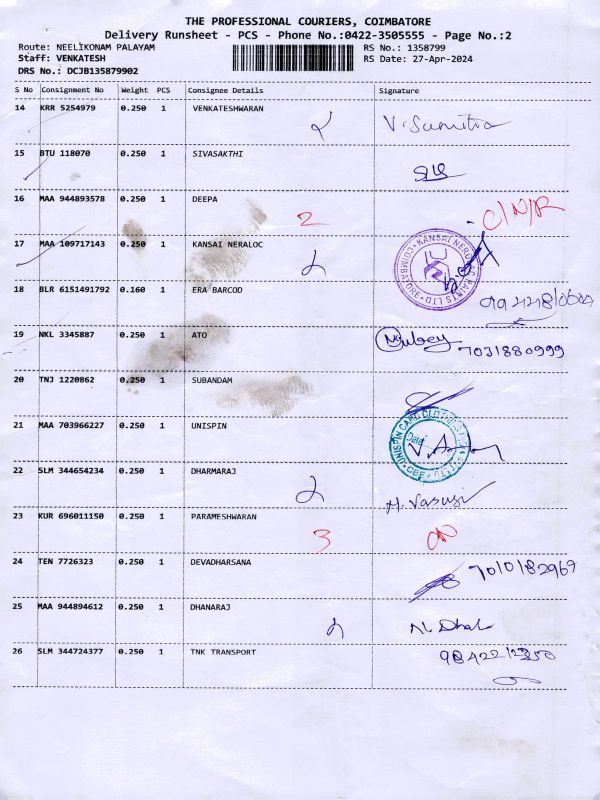 THE PROFESSIONAL COURIERS, COIMBATORE
Delivery Runsheet - PCS - Phone No.:0422-3505555 - Page No.:2
Route: NEELIKONAM PALAYAM RS No.: 1358799
Staff: VENKATESH RS Date: 27-Apr-2024
DRS No.: DCJB135879902
S No Consignment No Weight PCS Consignee Details Signature
14 KRR 5254979 0.250 1 VENKATESHWARAN V. Sumitra
15 BTU 118070 0.250 1 SIVASAKTHI
16 MAA 944893578 0.250 1 DEEPA 2 C/N/R
17 MAA 109717143 0.250 1 KANSAI NERALOC
18 BLR 6151491792 0.160 1 ERA BARCOD
19 NKL 3345887 0.250 1 ATO 7031880999
20 TNJ 1220862 0.250 1 SUBANDAM
21 MAA 703966227 0.250 1 UNISPIN
22 SLM 344654234 0.250 1 DHARMARAJ M. Vasugi
23 KUR 696011150 0.250 1 PARAMESHWARAN 3
24 TEN 7726323 0.250 1 DEVADHARSANA 7010182969
25 MAA 944894612 0.250 1 DHANARAJ
26 SLM 344724377 0.250 1 TNK TRANSPORT